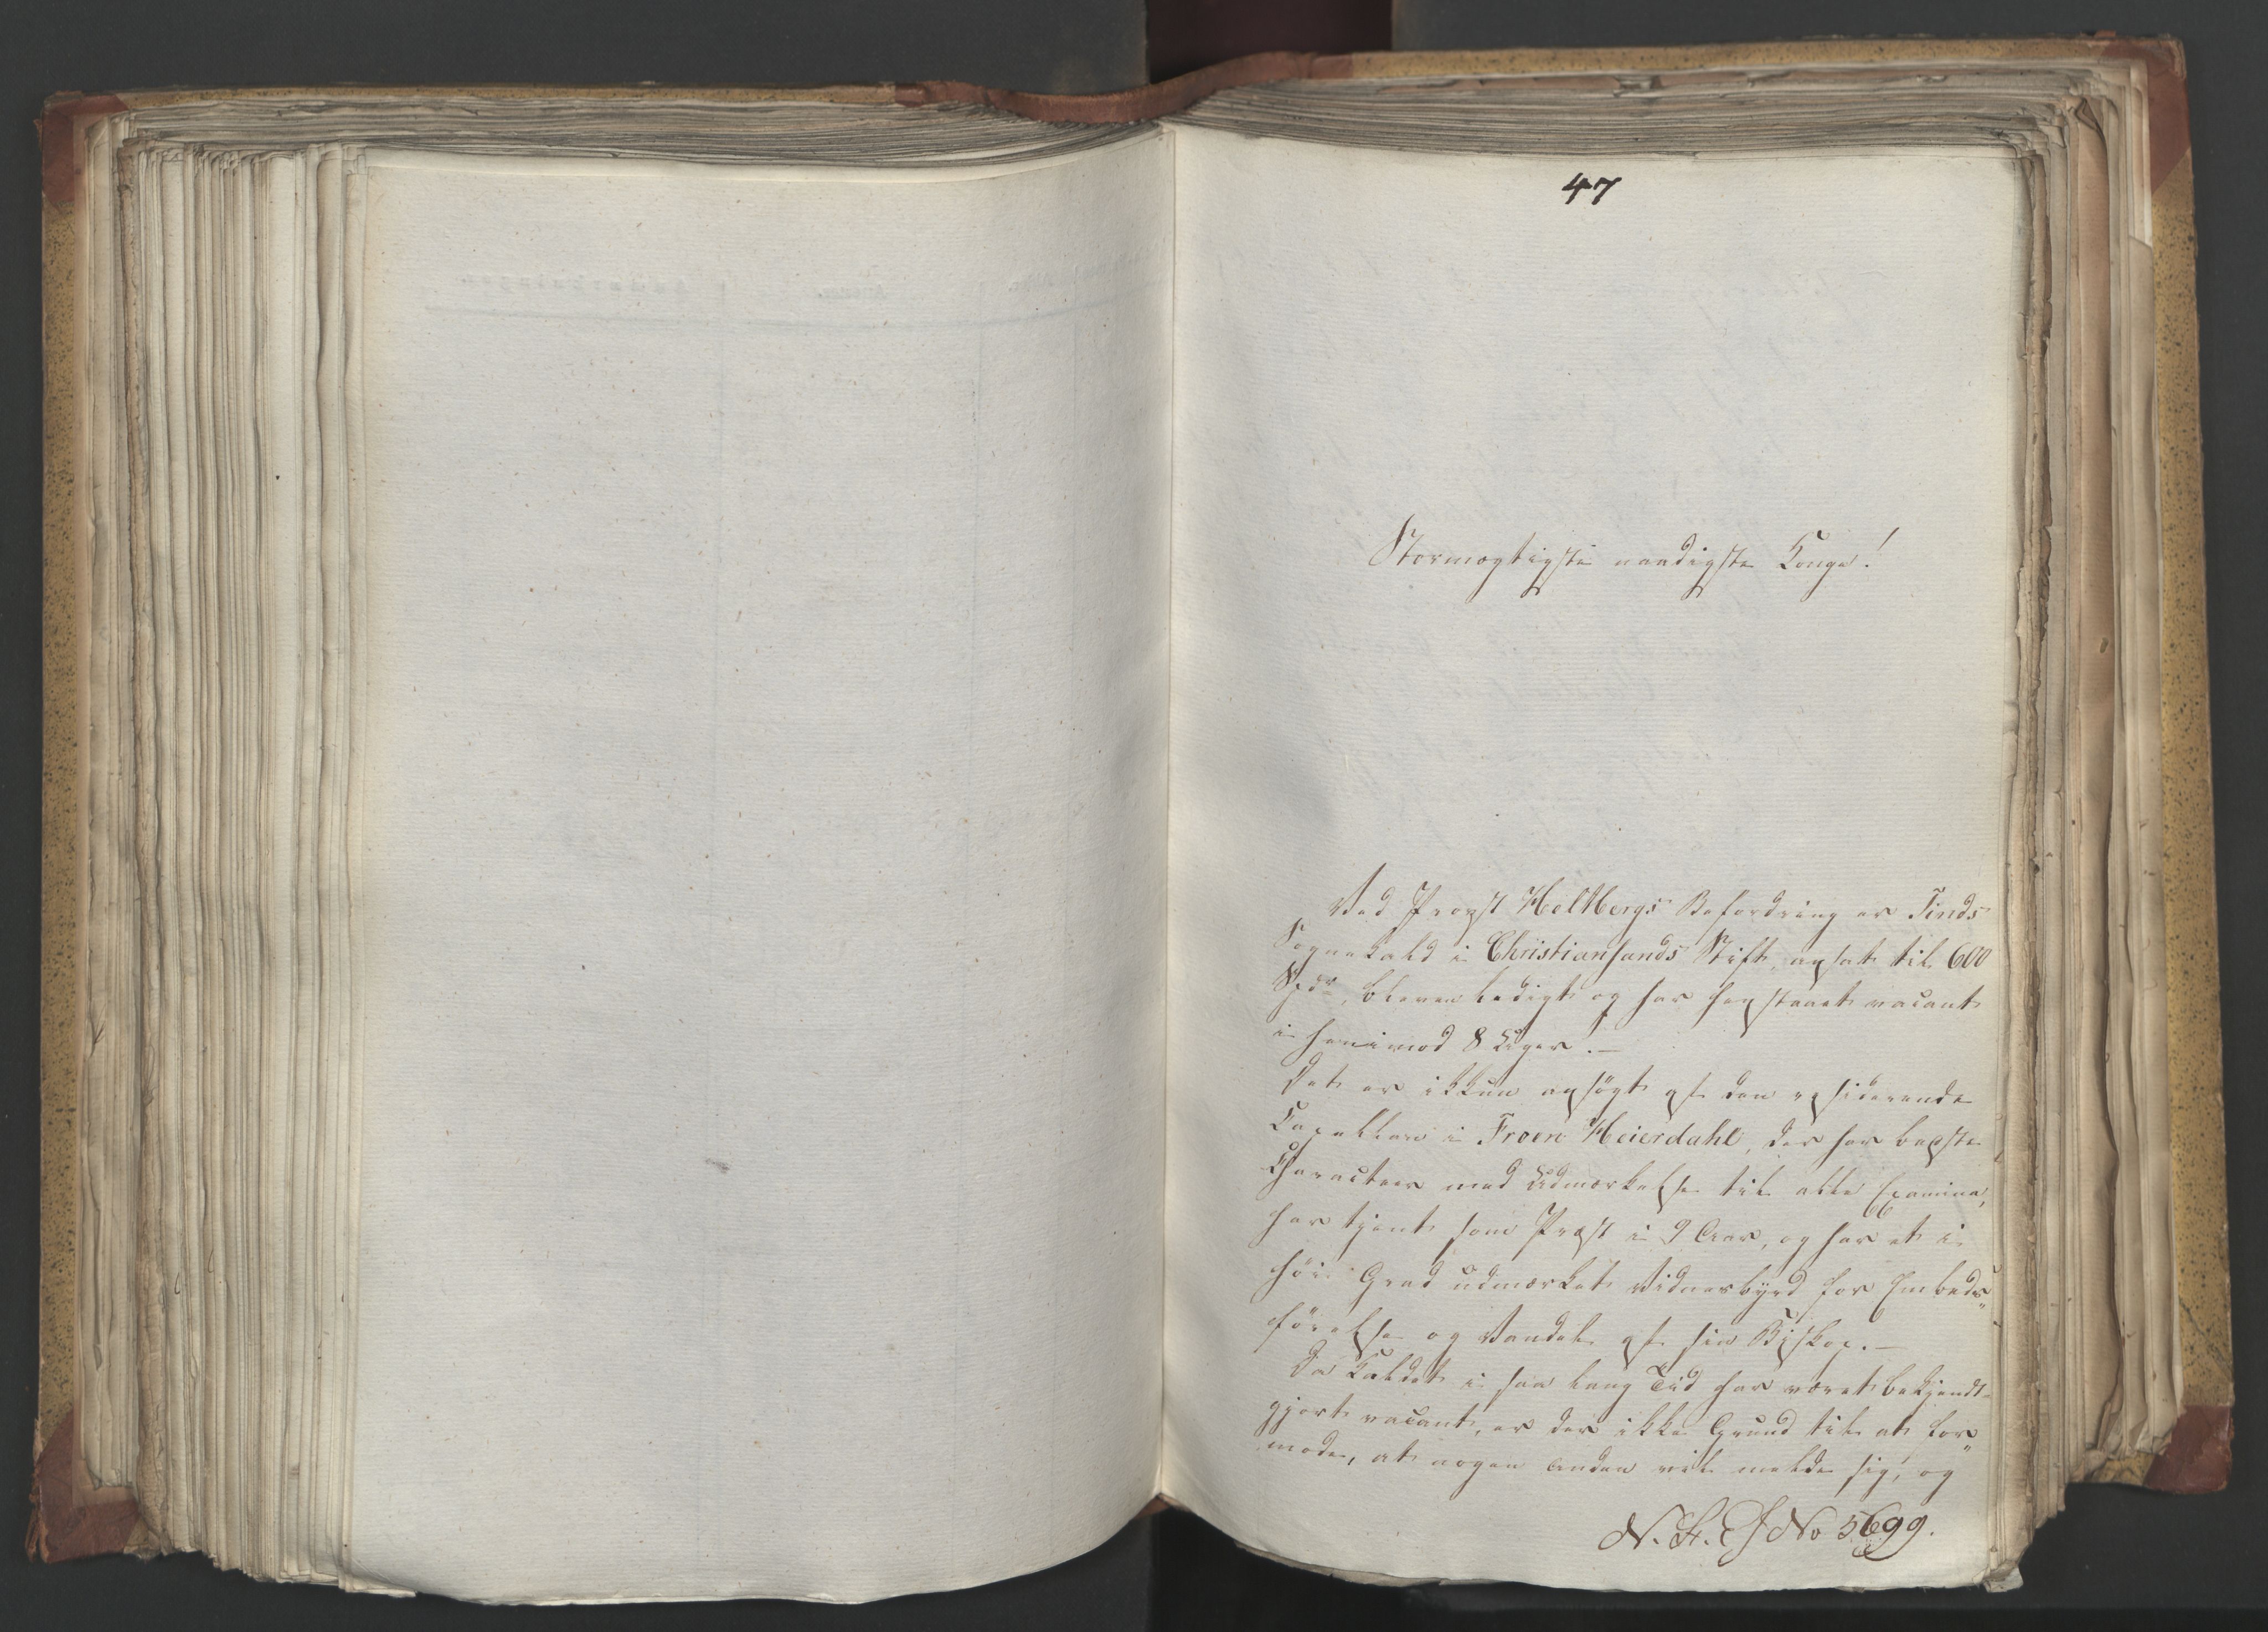 47
Stormægtigste naadigste Konge!
Ved Provst Heltbergs Befordring er Tinds
Sognekald i Christiansands Stift, ansat til 600
Spdr, bleven ledigt og har henstaaet vacant
i henimod 8 Uger. —
Det er ikkun ansøgt af den residerende
Capellan i Froen Heierdahl, der har bedste
Characteer med Udmærkelse til alle Examina,
har tjent som Præst i 9 Aar, og har et i
høi Grad udmærket Vidnesbyrd for Embeds„
førelse og Vandel af sin Biskop. —
Da Kaldet i saa lang Tid har været bekjendt-
gjort vacant, er der ikke Grund til at for„
mode, at nogen Anden vil melde sig, og
No 5699.